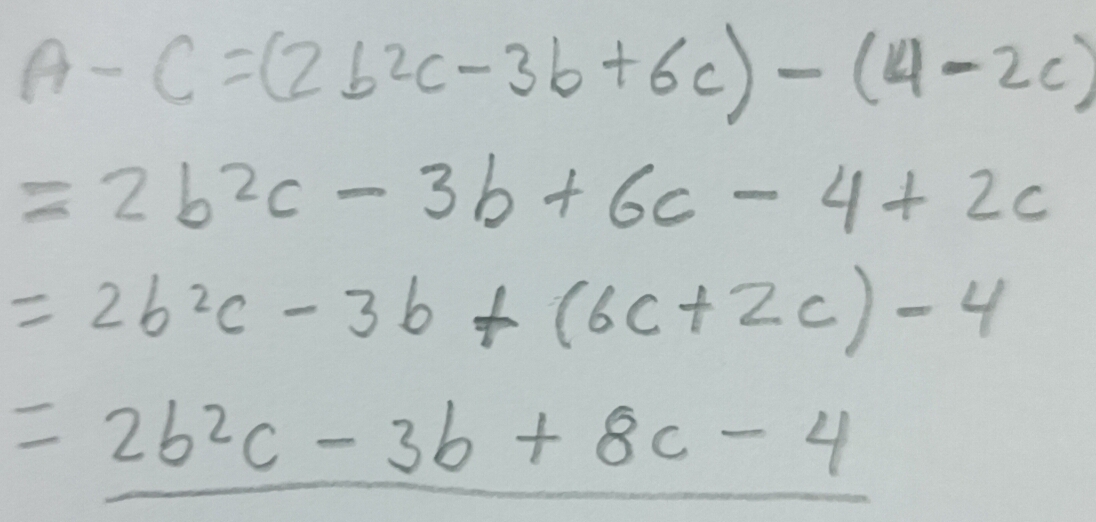 A - C = (2b²c - 3b + 6c) - (4 - 2c)
= 2b²c - 3b + 6c - 4 + 2c
= 2b²c - 3b + (6c + 2c) - 4
= 2b²c - 3b + 8c - 4